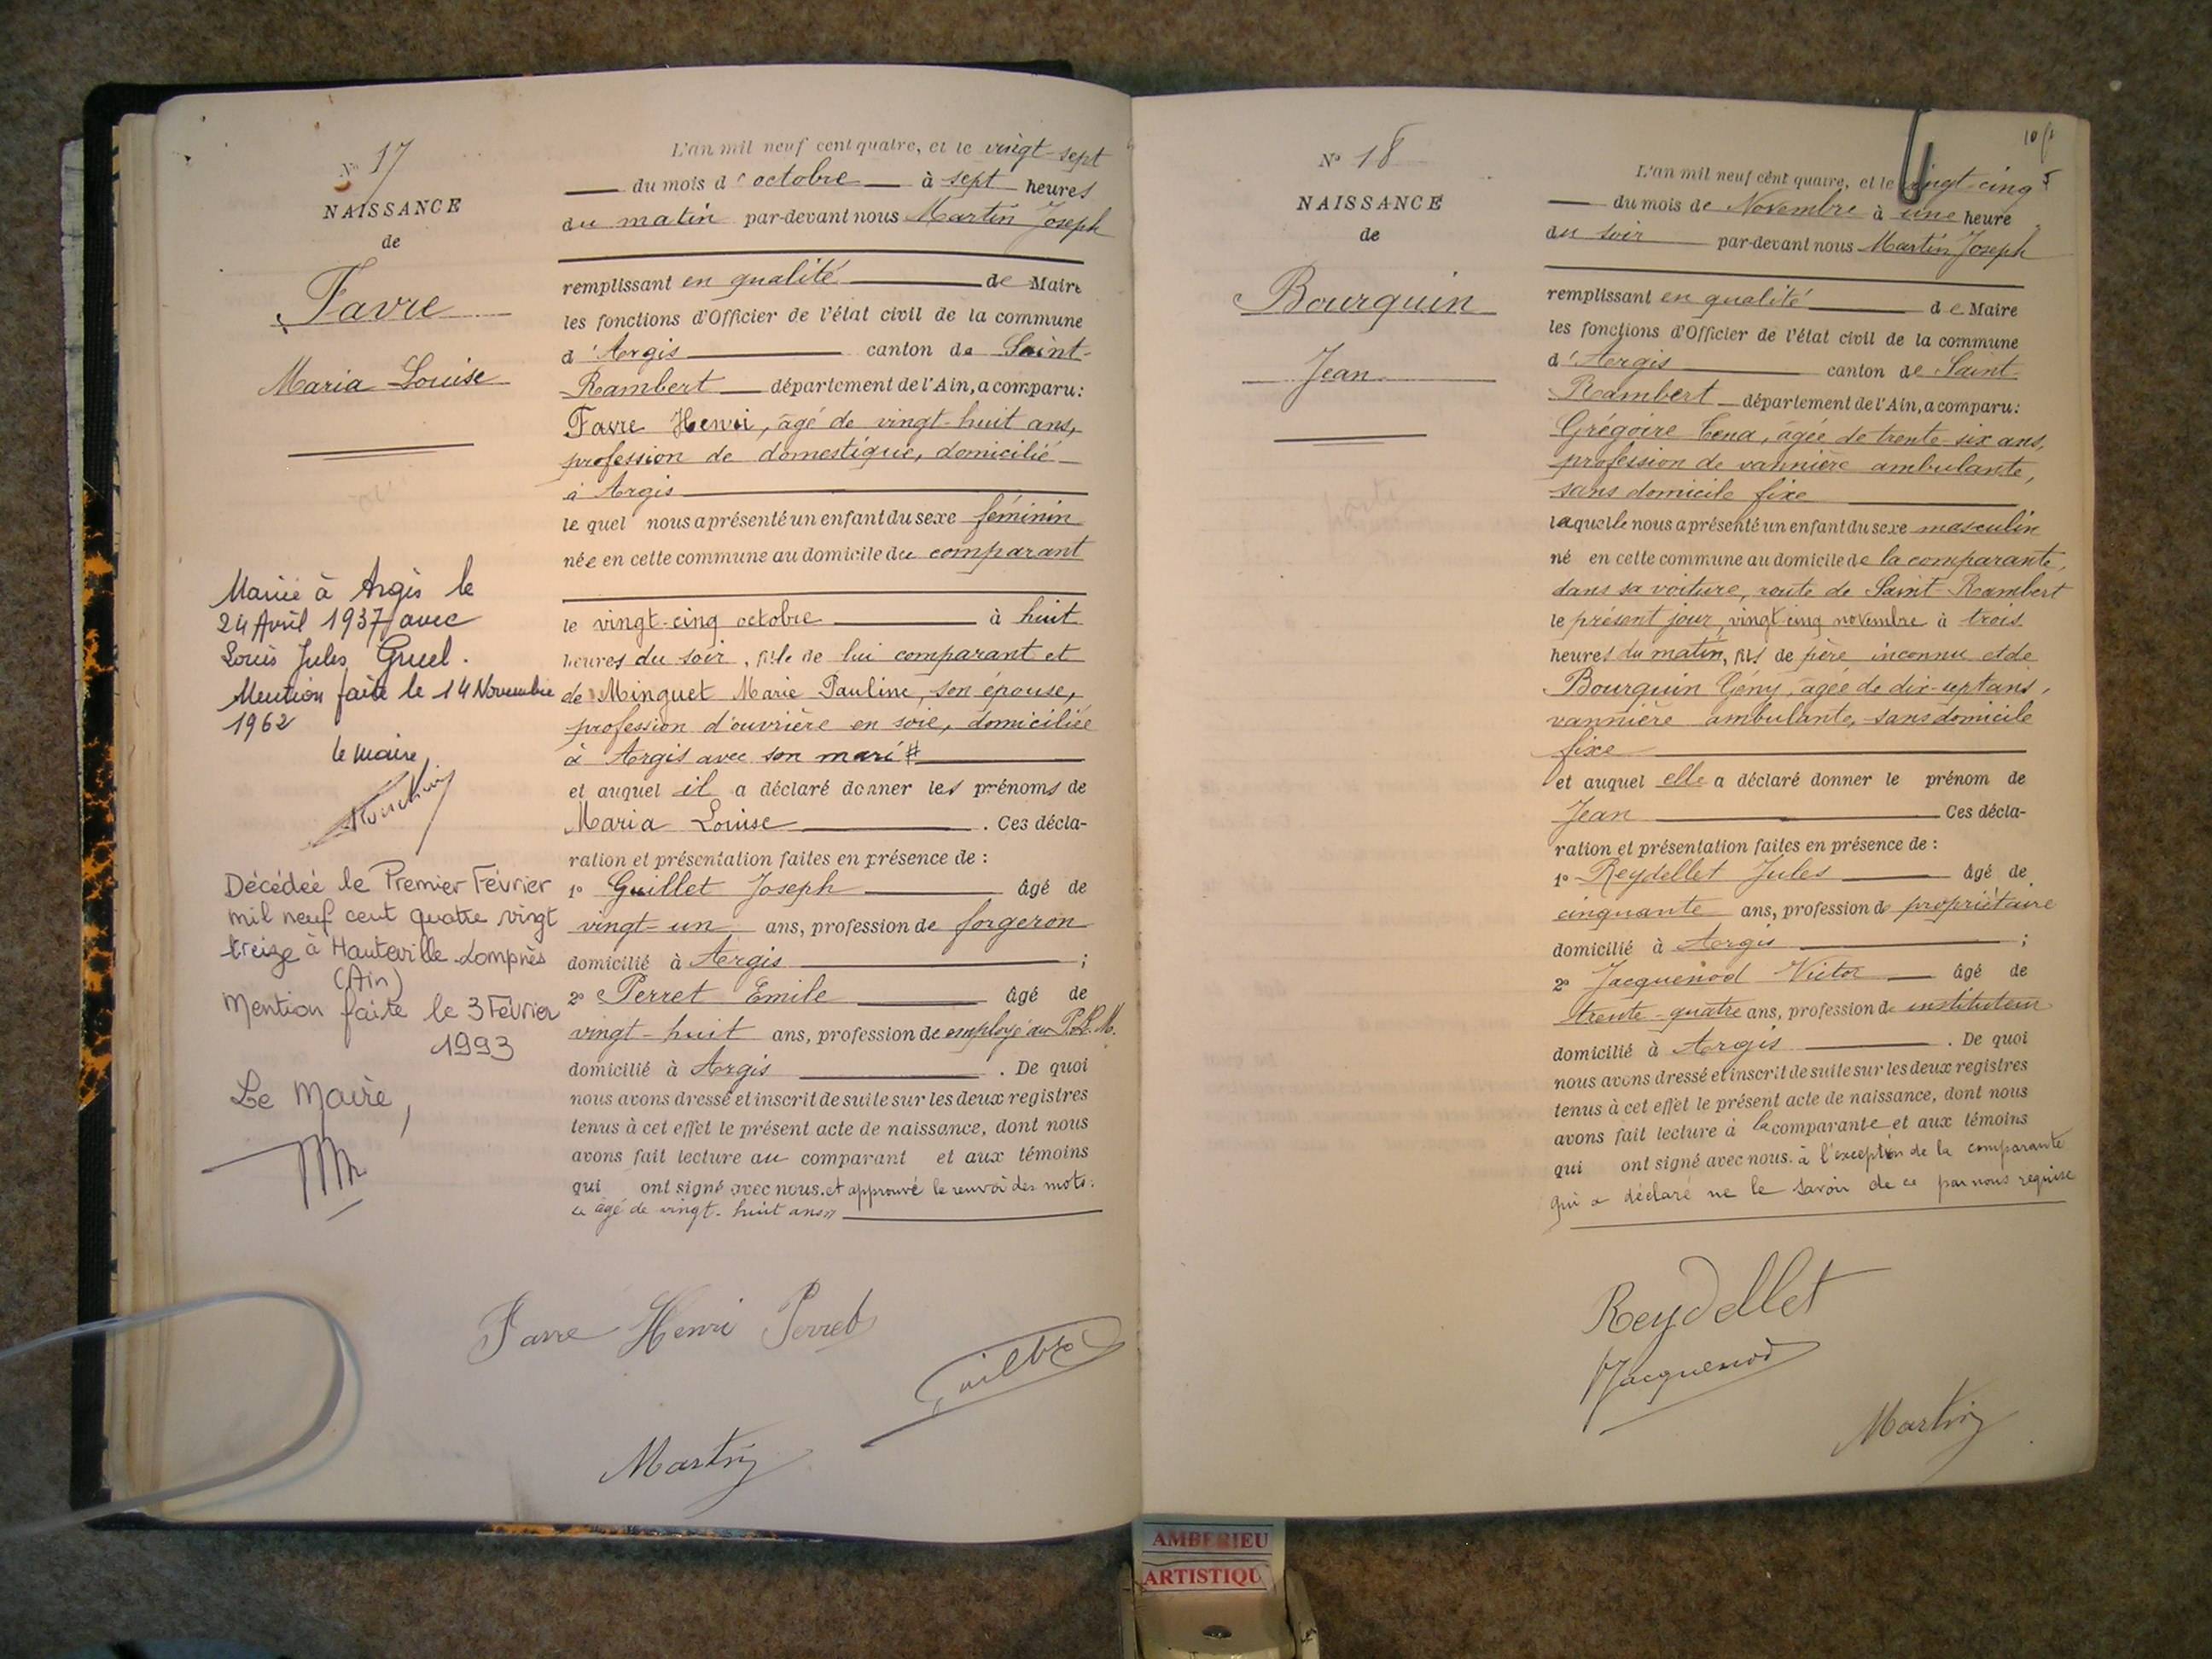 N° 17
NAISSANCE
de
Favre
Maria Louise
Mariée à Argis le
24 Avril 1937 avec
Louis Jules Gruel.
Mention faite le 14 Novembre
1962
le maire,
Décédée le Premier Février
mil neuf cent quatre vingt
treize à Hauteville-Lompnès
(Ain)
Mention faite le 3 Février
1993
Le Maire,
L'an mil neuf cent quatre, et le vingt-sept
du mois d'octobre à sept heures
du matin par-devant nous Martin Joseph
remplissant en qualité de Maire
les fonctions d'Officier de l'état civil de la commune
d'Argis canton de Saint-
Rambert département de l'Ain, a comparu:
Favre Henri, âgé de vingt-huit ans,
profession de domestique, domicilié
à Argis
le quel nous a présenté un enfant du sexe féminin
née en cette commune au domicile du comparant
le vingt-cinq octobre à huit
heures du soir, fille de lui comparant et
de Minguet Marie Pauline, son épouse,
profession d'ouvrière en soie, domiciliée
à Argis avec son mari #
et auquel il a déclaré donner les prénoms de
Maria Louise. Ces décla-
ration et présentation faites en présence de :
1° Guillet Joseph âgé de
vingt-un ans, profession de forgeron
domicilié à Argis ;
2° Perret Emile âgé de
vingt-huit ans, profession de employé au P.L.M.
domicilié à Argis . De quoi
nous avons dressé et inscrit de suite sur les deux registres
tenus à cet effet le présent acte de naissance, dont nous
avons fait lecture au comparant et aux témoins
qui ont signé avec nous. et approuvé le renvoi des mots:
" âgé de vingt-huit ans "
Favre Henri Perret
Martin
N° 18
NAISSANCE
de
Bourquin
Jean
L'an mil neuf cent quatre, et le vingt-cinq
du mois de Novembre à une heure
du soir par-devant nous Martin Joseph
remplissant en qualité de Maire
les fonctions d'Officier de l'état civil de la commune
d'Argis canton de Saint-
Rambert département de l'Ain, a comparu:
Grégoire âgée de trente-six ans,
profession de vannière ambulante,
sans domicile fixe
laquelle nous a présenté un enfant du sexe masculin
né en cette commune au domicile de la comparante,
dans sa voiture, route de Saint-Rambert
le présent jour, vingt-cinq novembre à trois
heures du matin, fils de père inconnu et de
Bourquin Gény, âgée de dix-sept ans,
vannière ambulante, sans domicile
fixe
et auquel elle a déclaré donner le prénom de
Jean Ces décla-
ration et présentation faites en présence de :
1° Reydellet Jules âgé de
cinquante ans, profession de propriétaire
domicilié à Argis ;
2° Jacquenod Victor âgé de
trente-quatre ans, profession de instituteur
domicilié à Argis . De quoi
nous avons dressé et inscrit de suite sur les deux registres
tenus à cet effet le présent acte de naissance, dont nous
avons fait lecture à la comparante et aux témoins
qui ont signé avec nous. à l'exception de la comparante
qui a déclaré ne le savoir de ce par nous requise
Reydellet
Jacquenod
Martin
AMBERIEU
ARTISTIQU